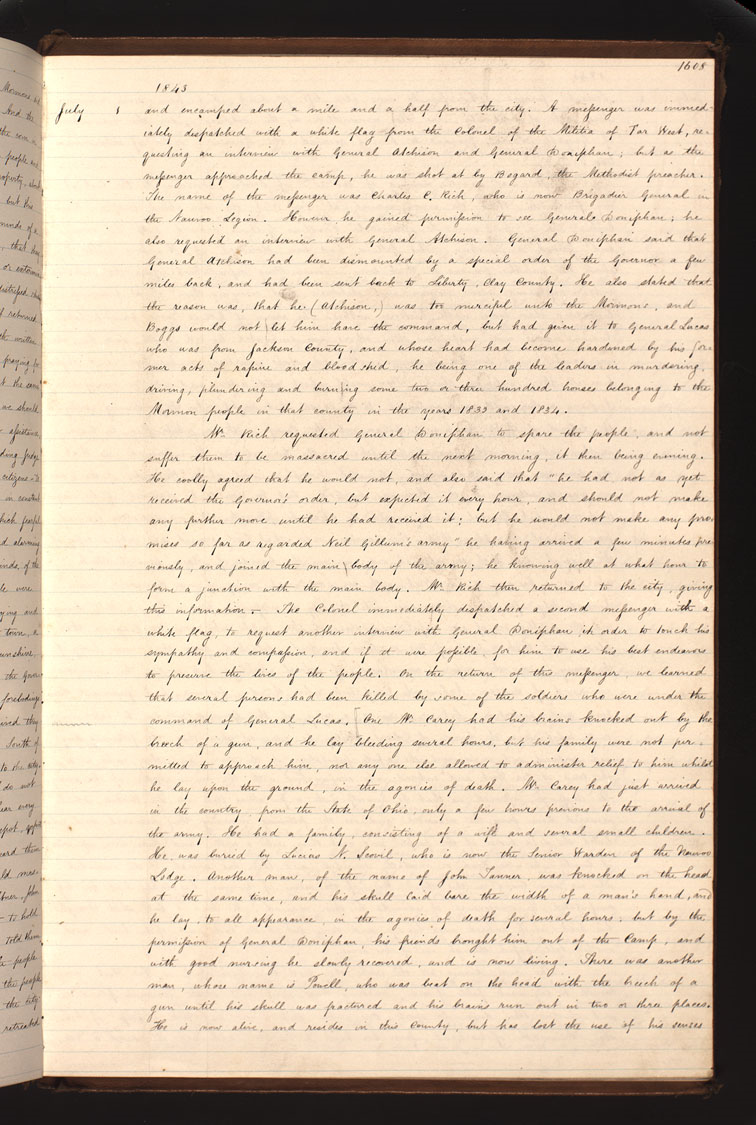 1608
1843
July 1 and encamped about a mile and a half from the city. A messenger was immed-
iately despatched with a white flag from the Colonel of the Militia of Far West, re-
questing an interview with General Atchison and General Doniphan; but as the
messenger approached the camp, he was shot at by Bogard, the Methodist preacher.
The name of the messenger was Charles C. Rich, who is now Brigadier General in
the Nauvoo Legion. However he gained permission to see General Doniphan; he
also requested an interview with General Atchison. General Doniphan said that
General Atchison had been dismounted by a special order of the Governor a few
miles back, and had been sent back to Liberty, Clay County. He also stated that
the reason was, that he (Atchison,) was too merciful unto the Mormons, and
Boggs would not let him have the command, but had given it to General Lucas
who was from Jackson County, and whose heart had become hardened by his for-
mer acts of rapine and bloodshed, he being one of the leaders in murdering,
driving, plundering and burning some two or three hundred houses belonging to the
Mormon people in that county in the years 1833 and 1834.
Mr. Rich requested General Doniphan to spare the people, and not
suffer them to be massacred until the next morning, it then being evening.
He coolly agreed that he would not, and also said that "he had not as yet
received the Governor's order, but expected it every hour, and should not make
any further move until he had received it; but he would not make any pro-
mises so far as regarded Neil Gillum's army" he having arrived a few minutes pre-
viously, and joined the main body of the army; he knowing well at what hour to
form a junction with the main body. Mr. Rich then returned to the city, giving
this information. The Colonel immediately dispatched a second messenger with a
white flag, to request another interview with General Doniphan in order to touch his
sympathy and compassion, and if it were possible, for him to use his best endeavors
to preserve the lives of the people. On the return of this messenger, we learned
that several persons had been killed by some of the soldiers who were under the
command of General Lucas. [One Mr. Carey had his brains knocked out by the
breech of a gun, and he lay bleeding several hours, but his family were not per-
mitted to approach him, nor any one else allowed to administer relief to him whilst
he lay upon the ground, in the agonies of death. Mr. Carey had just arrived
in the country, from the State of Ohio, only a few hours previous to the arrival of
the army. He had a family, consisting of a wife and several small children.
He was buried by Lucius N. Scovil, who is now the Senior Warden of the Nauvoo
Lodge. Another man, of the name of John Tanner, was knocked on the head
at the same time, and his skull laid bare the width of a man's hand, and
he lay, to all appearance, in the agonies of death for several hours; but by the
permission of General Doniphan, his friends brought him out of the Camp, and
with good nursing he slowly recovered, and is now living. There was another
man, whose name is Powell, who was beat on the head with the breech of a
gun until his skull was fractured and his brains run out in two or three places.
He is now alive, and resides in this County, but has lost the use of his senses